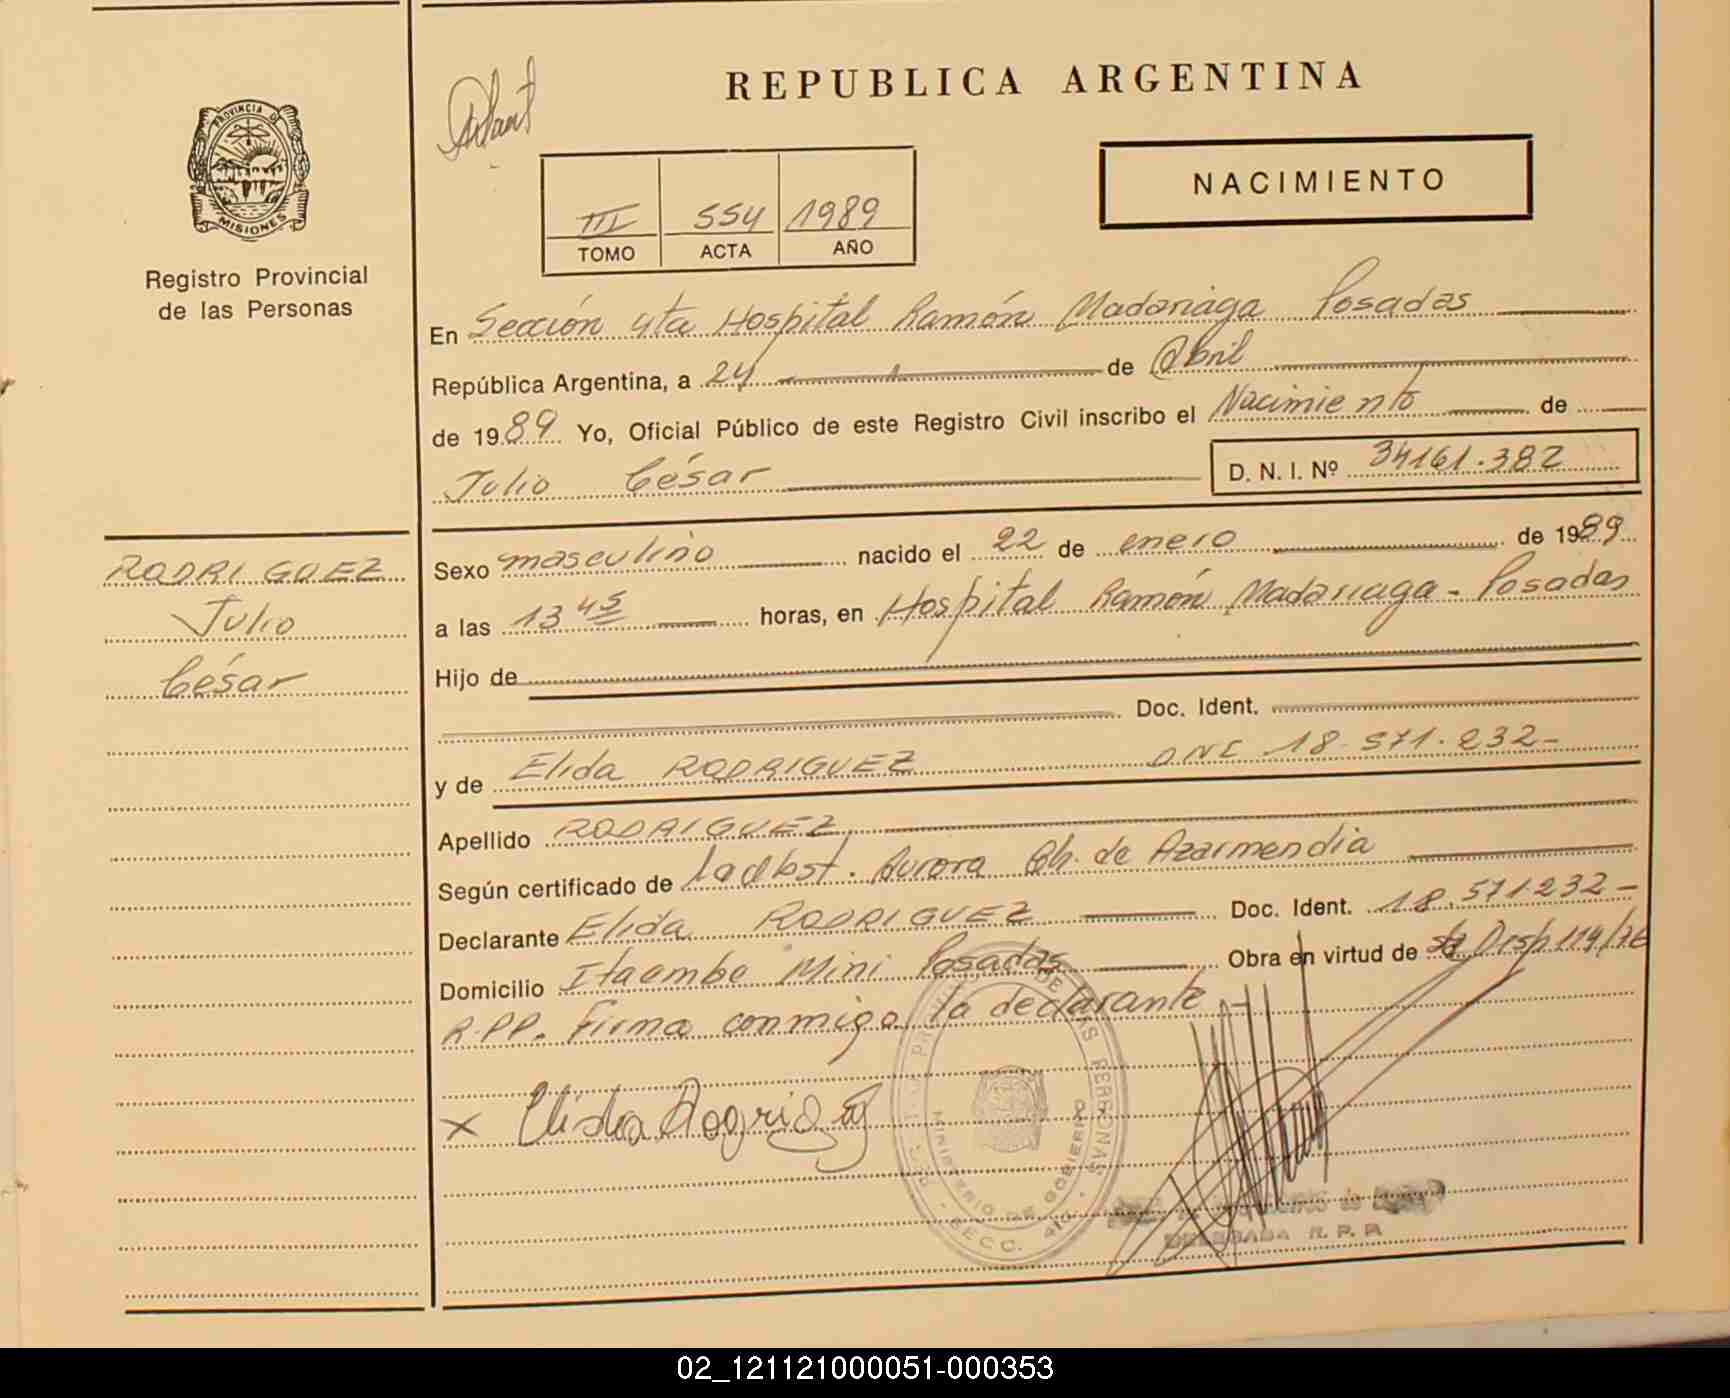 REPUBLICA ARGENTINA
PROVINCIA DE
MISIONES
Registro Provincial
de las Personas
NACIMIENTO
III 554 1989
TOMO ACTA AÑO
En Sección 4ta Hospital Ramón Madariaga Posadas
República Argentina, a 24 de Abril
de 1989 Yo, Oficial Público de este Registro Civil inscribo el Nacimiento de
Julio César D. N. I. Nº 34161.382
RODRIGUEZ
Julio
César
Sexo masculino nacido el 22 de enero de 1989
a las 13 45 horas, en Hospital Ramón Madariaga - Posadas
Hijo de
Doc. Ident.
y de Elida RODRIGUEZ DNI 18.571.232-
Apellido RODRIGUEZ
Según certificado de Aurora de Azarmendia
Declarante Elida RODRIGUEZ Doc. Ident. 18.571.232-
Domicilio Itaembe Mini Posadas Obra en virtud de Disp 114/76
R.PP. Firma conmigo la declarante -
x Elida Rodriguez
DE LAS PERSONAS
MINISTERIO DE GOBIERNO
SECC. 4ta.
DELEGADA R. P. P.
02_121121000051-000353